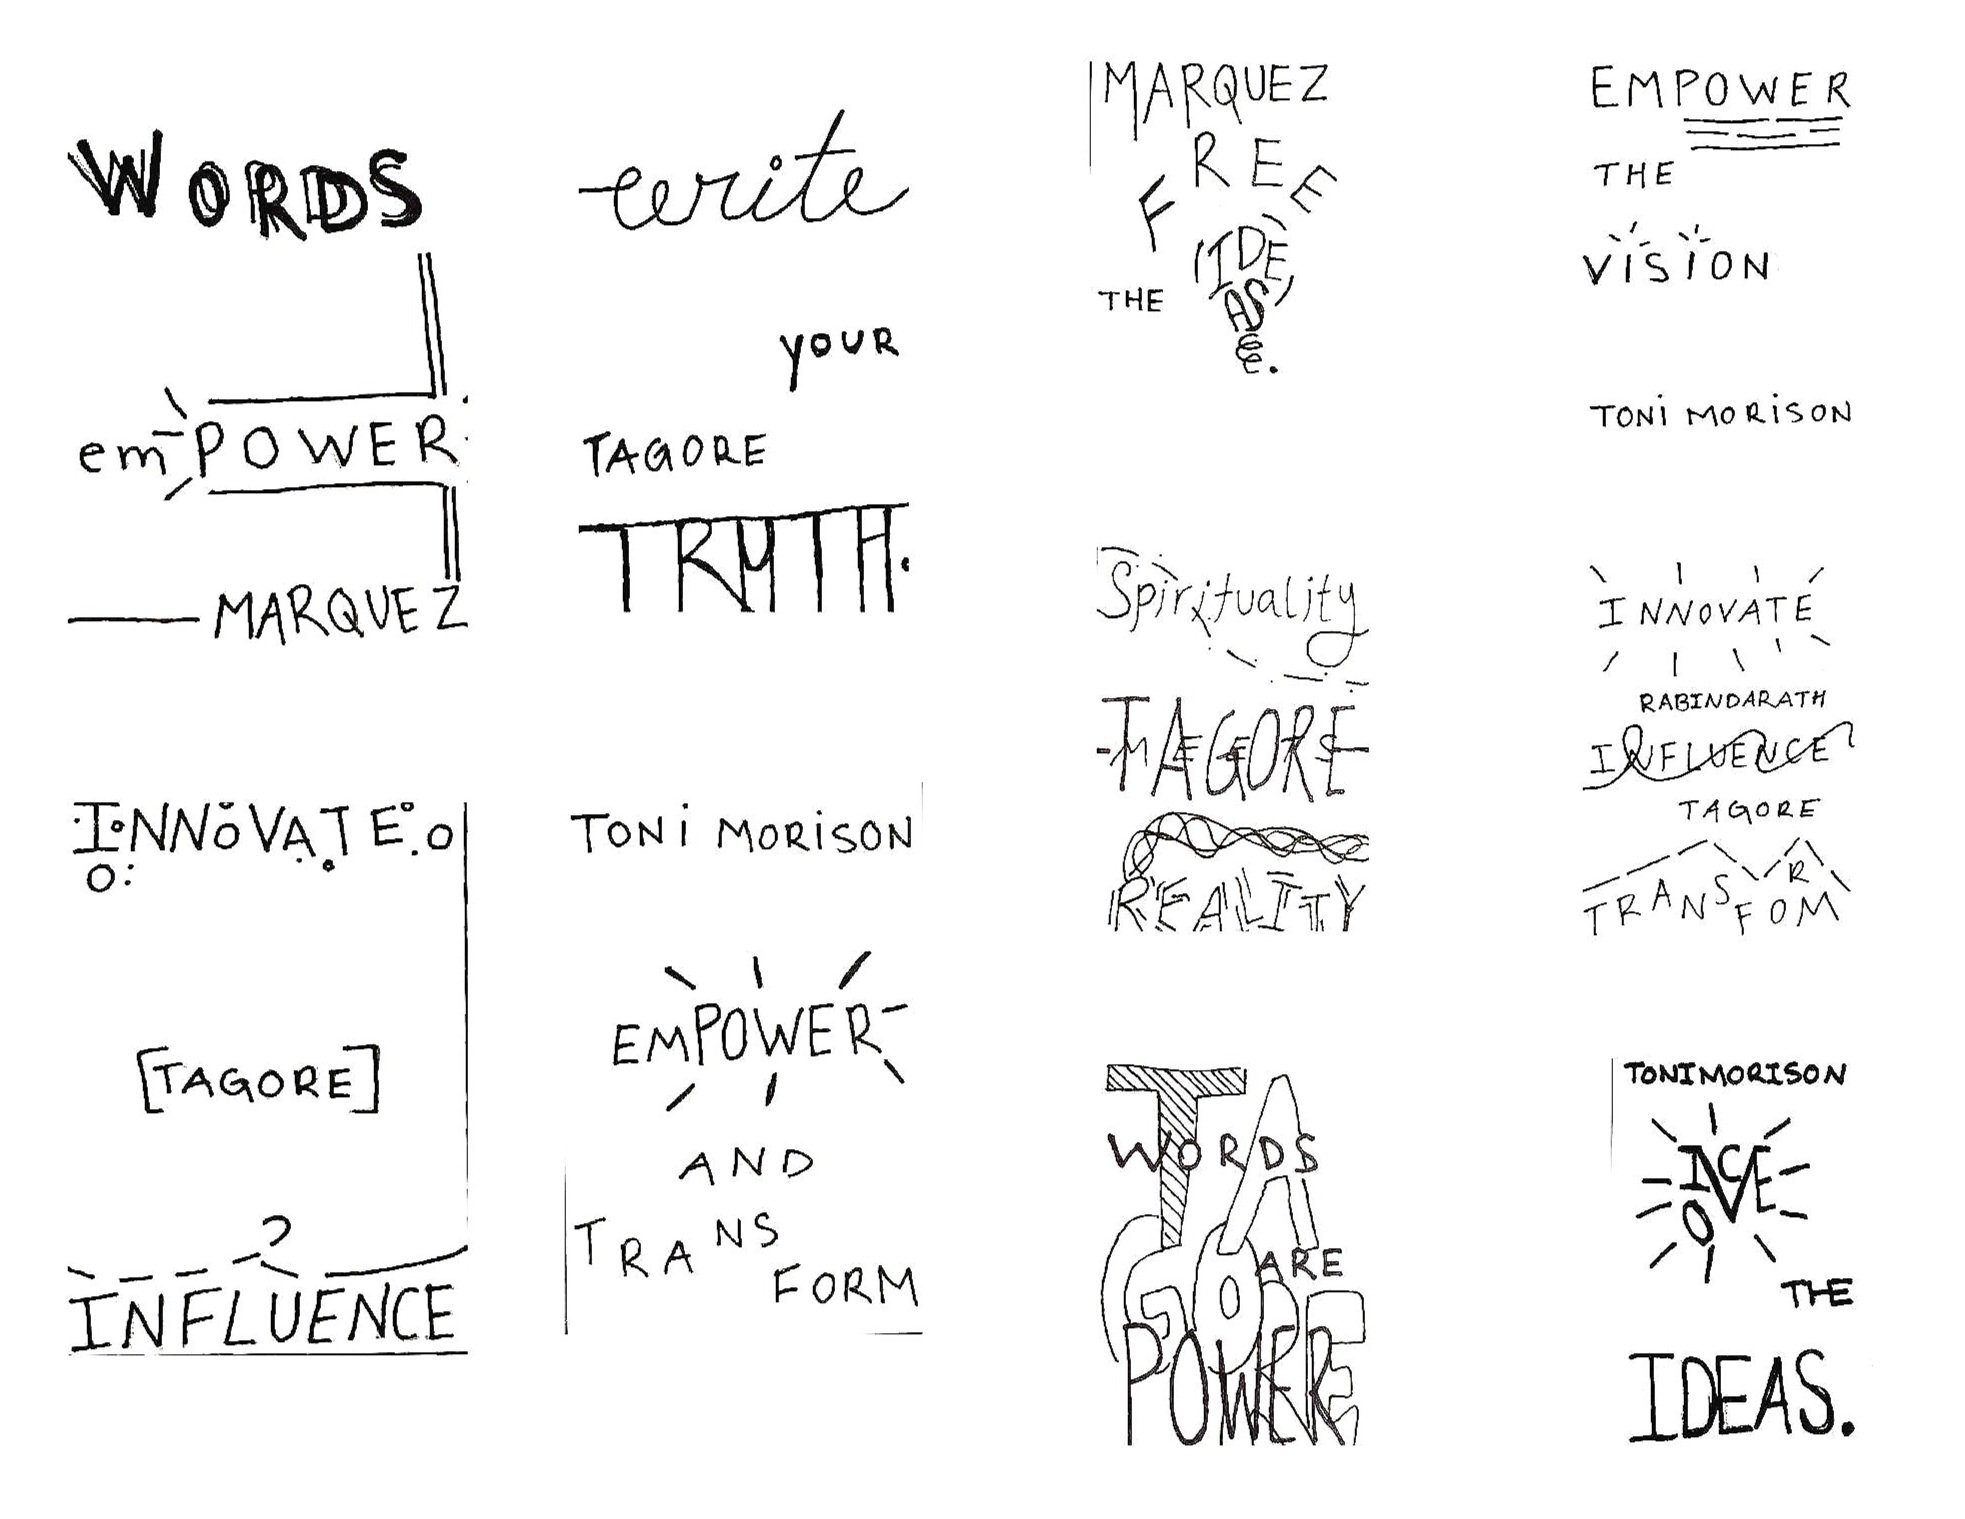 WORDS
emPOWER
MARQUEZ
write
YOUR
TAGORE
TRUTH.
MARQUEZ
FREE
THE
IDEAS.
EMPOWER
THE
VISION
TONI MORISON
INNOVATE
[TAGORE]
INFLUENCE
TONI MORISON
EMPOWER
AND
TRANS
FORM
Spirituality
TAGORE
MEETS
REALITY
INNOVATE
RABINDARATH
INFLUENCE
TAGORE
TRANSFORM
TAGORE
WORDS
ARE
POWER
TONIMORISON
VOICE
THE
IDEAS.